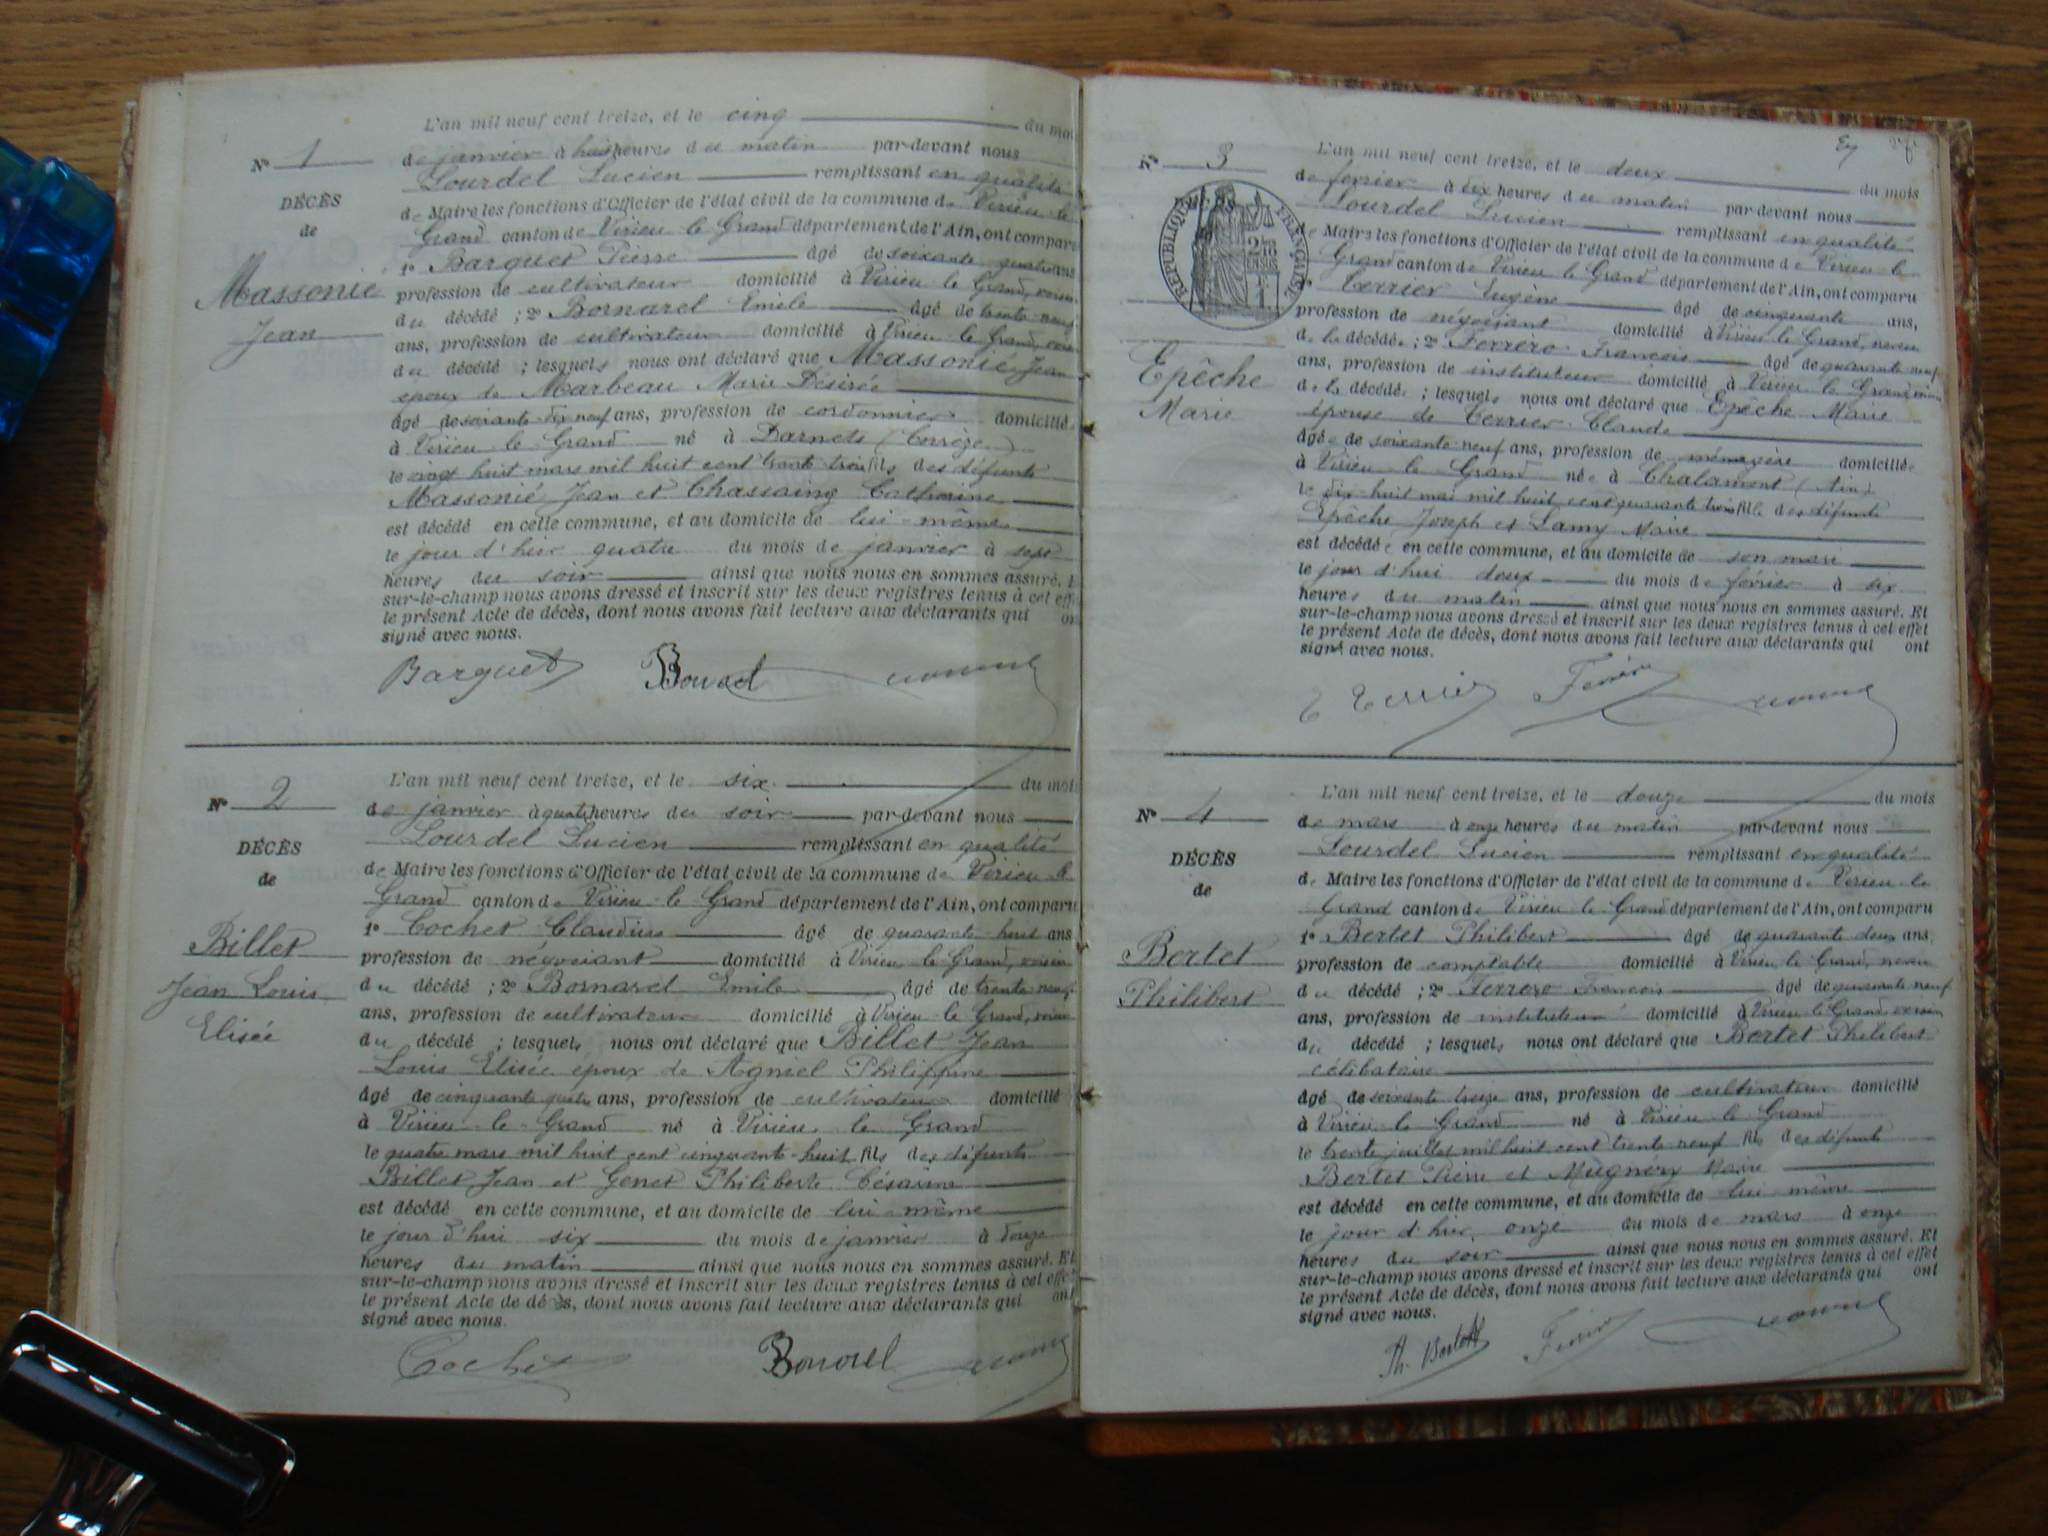 L'an mil neuf cent treize, et le cinq du mois
N° 1
de janvier à huit heures du matin par-devant nous
Lourdel Lucien remplissant en qualité
DÉCÈS
de Maire les fonctions d'Officier de l'état civil de la commune de Virieu le
de
Grand canton de Virieu le Grand département de l'Ain, ont comparu
1° Barquet Pierre âgé de soixante quatre ans
Massonié
profession de cultivateur domicilié à Virieu le Grand, voisin
du décédé ; 2° Bornarel Emile âgé de trente neuf
Jean
ans, profession de cultivateur domicilié à Virieu le Grand, voisin
du décédé ; lesquels nous ont déclaré que Massonié Jean
époux de Marbeau Marie Désirée
âgé de soixante dix neuf ans, profession de cordonnier domicilié
à Virieu le Grand né à Darnets (Corrèze)
le vingt huit mars mil huit cent trente trois fils des défunts
Massonié Jean et Chassaing Catherine
est décédé en cette commune, et au domicile de lui-même
le jour d'hier quatre du mois de janvier à sept
heures du soir ainsi que nous nous en sommes assuré. Et
sur-le-champ nous avons dressé et inscrit sur les deux registres tenus à cet effet
le présent Acte de décès, dont nous avons fait lecture aux déclarants qui ont
signé avec nous.
Barquet
L'an mil neuf cent treize, et le six du mois
N° 2
de janvier à quatre heures du soir par-devant nous
Lourdel Lucien remplissant en qualité
DÉCÈS
de Maire les fonctions d'Officier de l'état civil de la commune de Virieu le
de
Grand canton de Virieu le Grand département de l'Ain, ont comparu
1° Cochet Claudius âgé de quarante huit ans
Billet
profession de négociant domicilié à Virieu le Grand, voisin
du décédé ; 2° Bornarel Emile âgé de trente neuf
Jean Louis
ans, profession de cultivateur domicilié à Virieu le Grand, voisin
Elisée
du décédé ; lesquels nous ont déclaré que Billet Jean
Louis Elisée époux de Agniel Philippine
âgé de cinquante quatre ans, profession de cultivateur domicilié
à Virieu le Grand né à Virieu le Grand
le quatre mars mil huit cent cinquante-huit fils des défunts
Billet Jean et Genet Philiberte Césarine
est décédé en cette commune, et au domicile de lui-même
le jour d'hui six du mois de janvier à douze
heures du matin ainsi que nous nous en sommes assuré. Et
sur-le-champ nous avons dressé et inscrit sur les deux registres tenus à cet effet
le présent Acte de décès, dont nous avons fait lecture aux déclarants qui ont
signé avec nous.
Cochet Bornarel
L'an mil neuf cent treize, et le deux du mois
N° 3
de février à dix heures du matin par-devant nous
Lourdel Lucien remplissant en qualité
RÉPUBLIQUE FRANÇAISE
de Maire les fonctions d'Officier de l'état civil de la commune de Virieu le
Grand canton de Virieu le Grand département de l'Ain, ont comparu
1° Terrier Eugène âgé de cinquante ans,
profession de négociant domicilié à Virieu le Grand, neveu
de la décédée ; 2° Ferrero François âgé de quarante neuf
Epêche
ans, profession de instituteur domicilié à Virieu le Grand, voisin
Marie
de la décédée ; lesquels nous ont déclaré que Epêche Marie
épouse de Terrier Claude
âgée de soixante neuf ans, profession de ménagère domiciliée
à Virieu le Grand née à Chalamont (Ain)
le dix-huit mai mil huit cent quarante trois fille des défunts
Epêche Joseph et Lamy Marie
est décédée en cette commune, et au domicile de son mari
le jour d'hui deux du mois de février à six
heures du matin ainsi que nous nous en sommes assuré. Et
sur-le-champ nous avons dressé et inscrit sur les deux registres tenus à cet effet
le présent Acte de décès, dont nous avons fait lecture aux déclarants qui ont
signé avec nous.
E Terrier
L'an mil neuf cent treize, et le douze du mois
N° 4
de mars à onze heures du matin par-devant nous
Lourdel Lucien remplissant en qualité
DÉCÈS
de Maire les fonctions d'Officier de l'état civil de la commune de Virieu le
de
Grand canton de Virieu le Grand département de l'Ain, ont comparu
1° Bertet Philibert âgé de quarante deux ans,
Bertet
profession de comptable domicilié à Virieu le Grand, neveu
Philibert
du décédé ; 2° Ferrero François âgé de quarante neuf
ans, profession de instituteur domicilié à Virieu le Grand, voisin
du décédé ; lesquels nous ont déclaré que Bertet Philibert
célibataire
âgé de soixante treize ans, profession de cultivateur domicilié
à Virieu le Grand né à Virieu le Grand
le trente juillet mil huit cent trente neuf fils des défunts
Bertet Pierre et Mugnéry Marie
est décédé en cette commune, et au domicile de lui même
le jour d'hier, onze du mois de mars à onze
heures du soir ainsi que nous nous en sommes assuré. Et
sur-le-champ nous avons dressé et inscrit sur les deux registres tenus à cet effet
le présent Acte de décès, dont nous avons fait lecture aux déclarants qui ont
signé avec nous.
Ph. Bertet